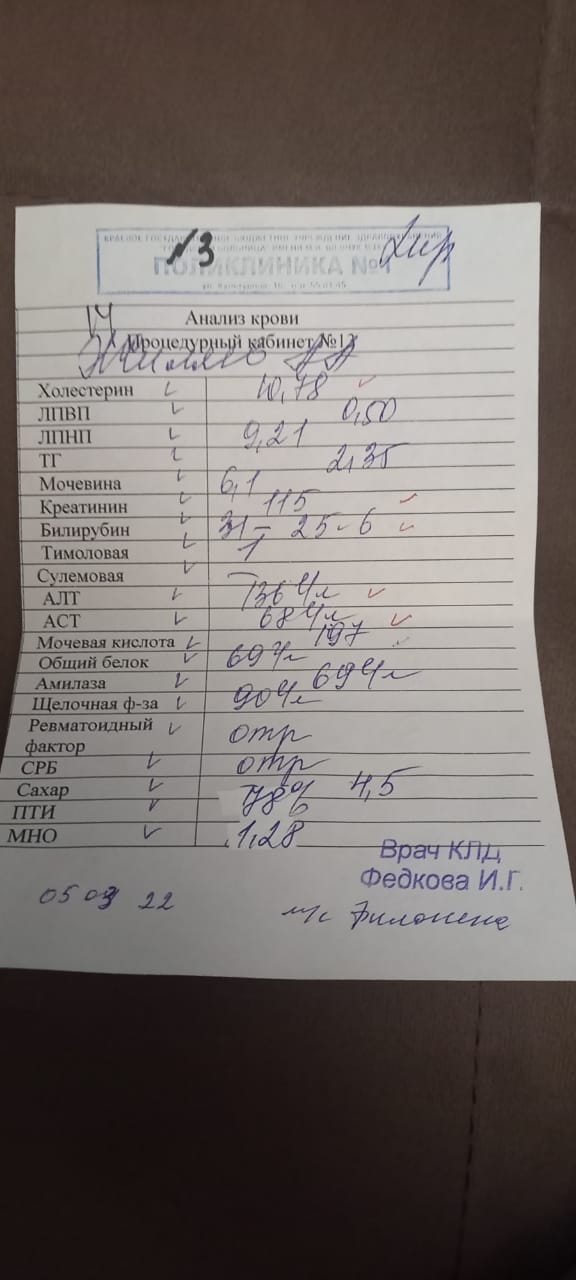 №3
ПОЛИКЛИНИКА №1
Анализ крови
Процедурный кабинет №12
Холестерин 10,78
ЛПВП 0,50
ЛПНП 9,21
ТГ 2,35
Мочевина 6,1
Креатинин 115
Билирубин 31 – 25 – 6
Тимоловая 1
Сулемовая –
АЛТ 136 Ч/л
АСТ 68 Ч/л
Мочевая кислота 197
Общий белок 69 Ч/л
Амилаза 69 Ч/л
Щелочная ф-за 90 Ч/л
Ревматоидный
фактор отр
СРБ отр
Сахар 4,5
ПТИ 78%
МНО 1,28
Врач КЛД
Федкова И.Г.
05 09 22
м/с